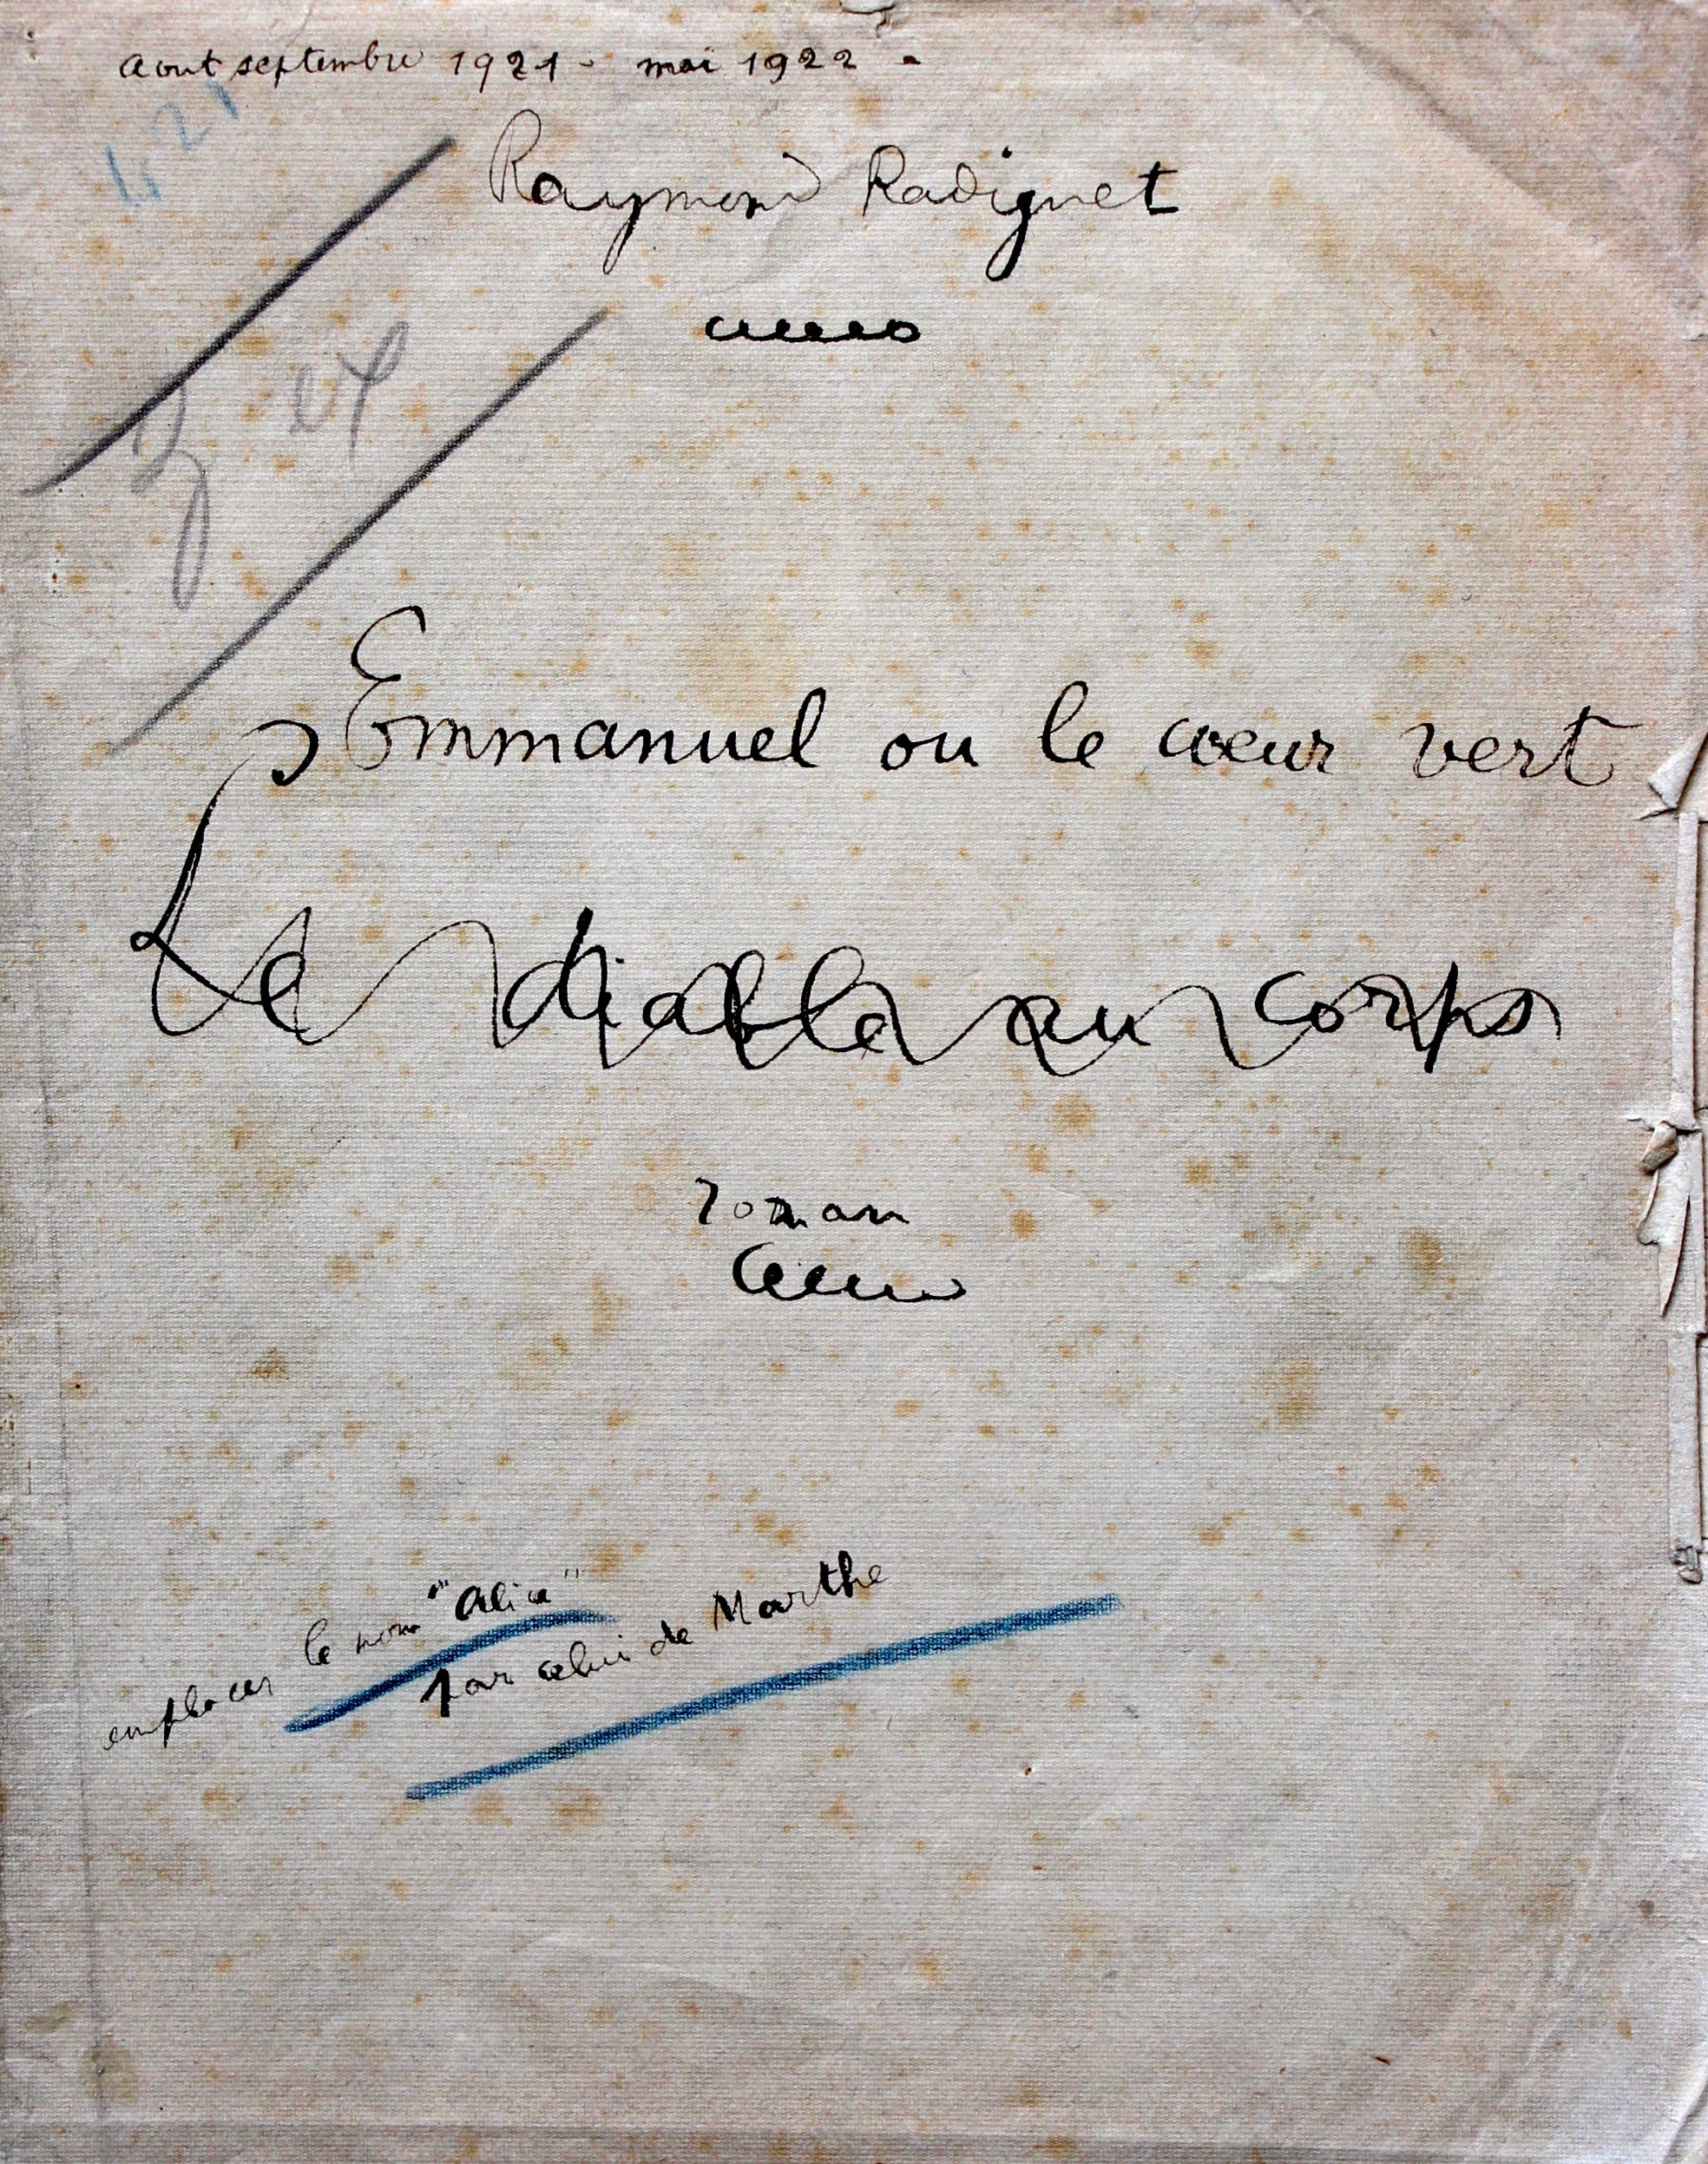 aout septembre 1921 - mai 1922 -
421
Raymond Radiguet
3 ex
Emmanuel ou le cœur vert
Le diable au corps
roman
emplacer le nom "Alice"
par celui de Marthe